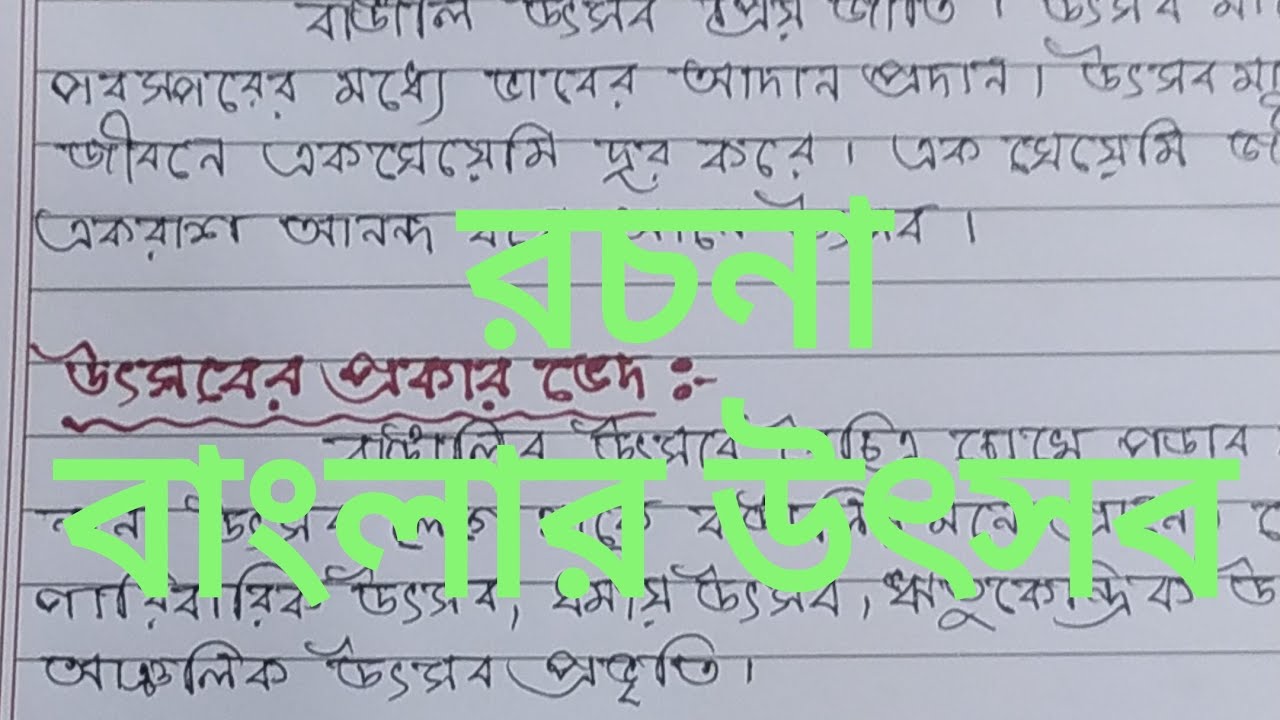 বাঙালি উৎসব প্রিয় জাতি । উৎসব
পরস্পরের মধ্যে ভাবের আদান প্রদান । উৎসব
জীবনে একঘেয়েমি দূর করে । এক ঘেয়েমি
একরাশ আনন্দ উৎসব ।
রচনা
উৎসবের প্রকার ভেদ :-
বাঙালির উৎসবে চোখে পড়ার
বাংলার উৎসব
উৎসব মনে
পারিবারিক উৎসব, ধর্মীয় উৎসব, ঋতুকেন্দ্রিক
আঞ্চলিক উৎসব প্রভৃতি ।